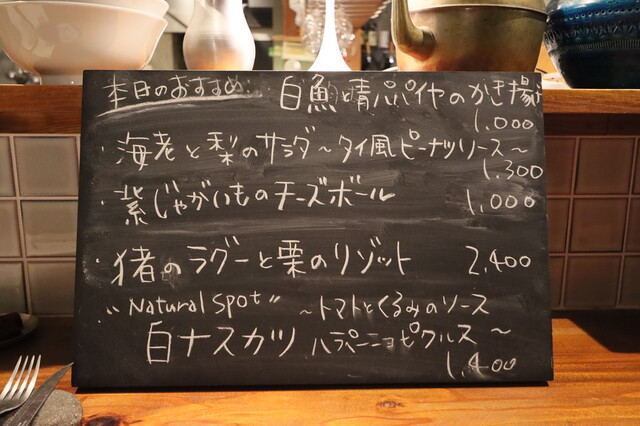 本日のおすすめ:
白魚と青パパイヤのかき揚げ
1.000
・海老と梨のサラダ～タイ風ピーナッツソース～
1.300
・紫じゃがいものチーズボール 1,000
・猪のラグーと栗のリゾット 2,400
"Natural Spot" ～トマトとくるみのソース
白ナスカツ ハラペーニョピクルス～
1,400